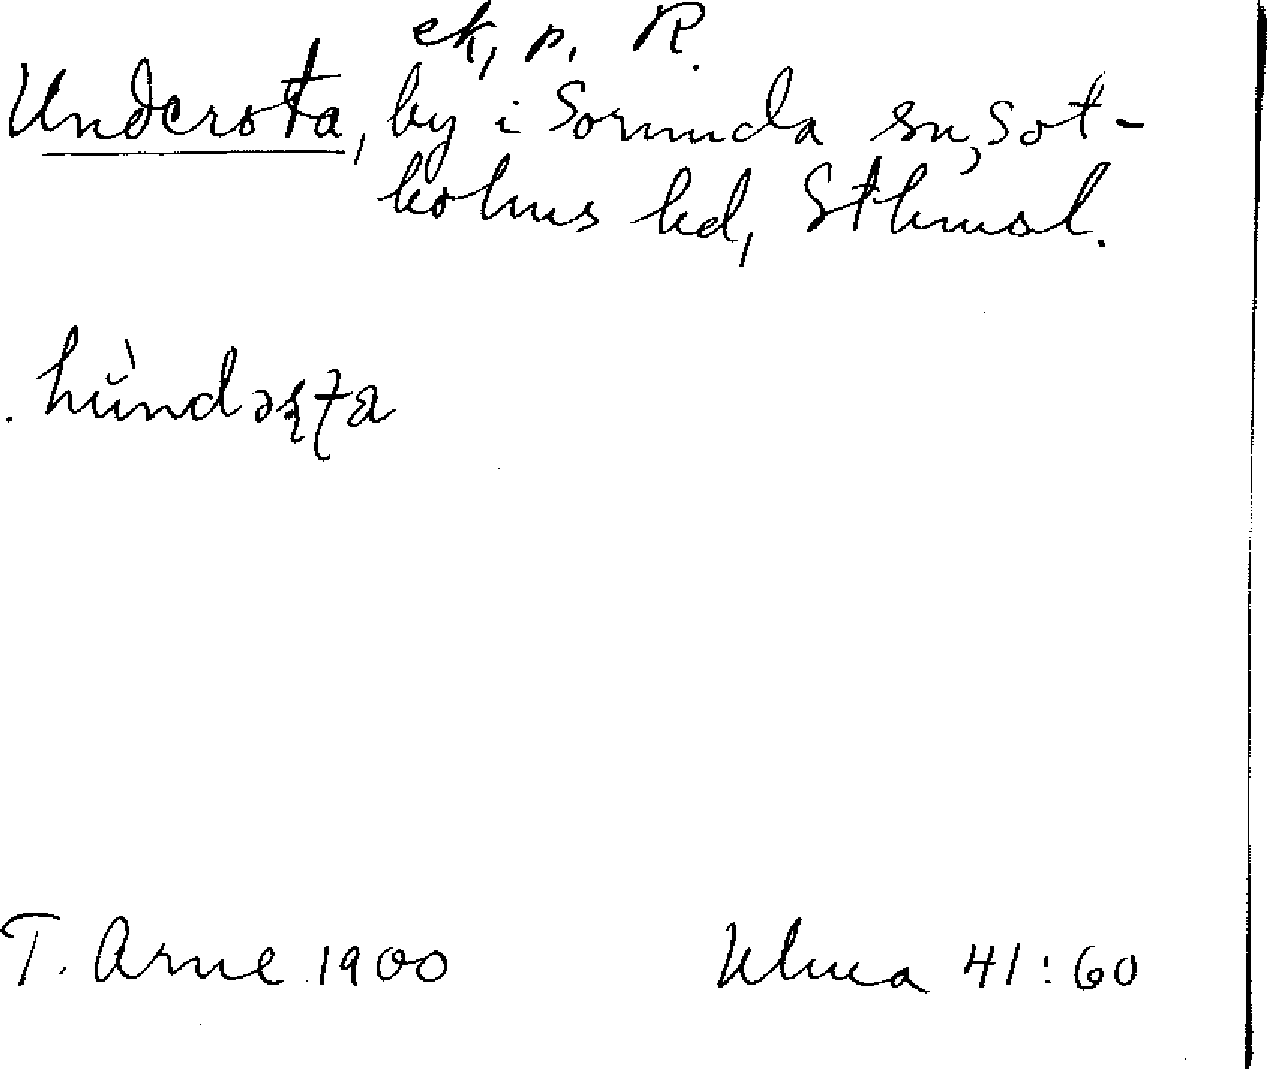 ek, p. R.
Underota, by i Sorunda sn, Sot-
holms hd, Sthmsl.
hùndərta
T. Arne 1900
Ulma 41:60